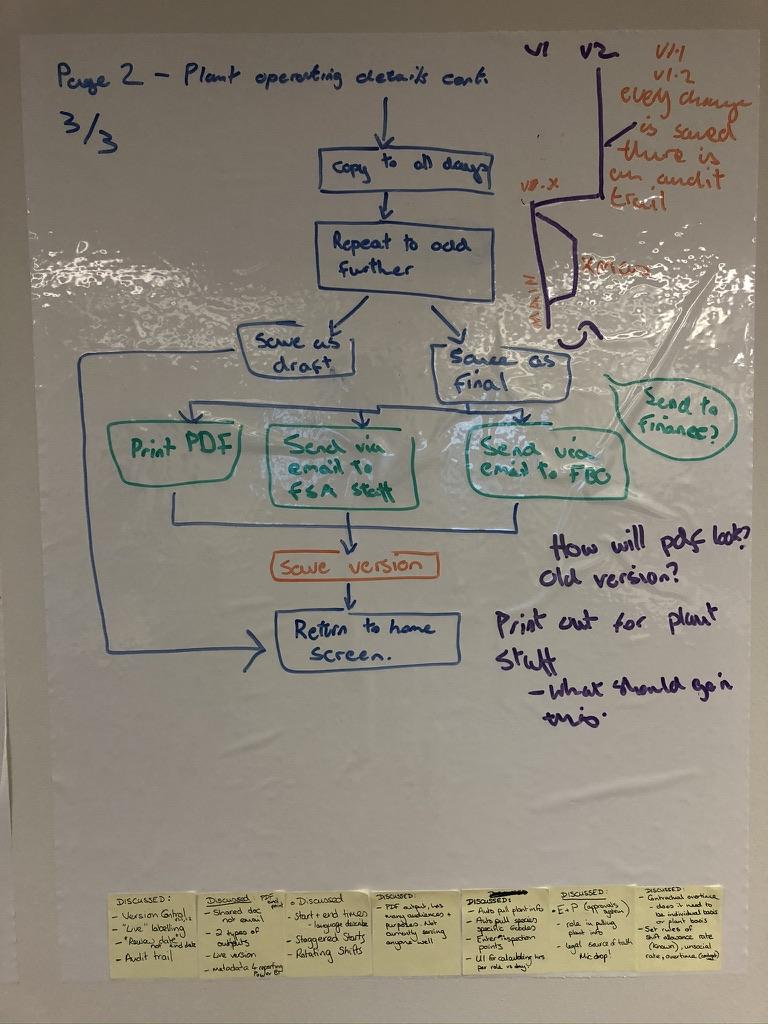 Page 2 - Plant operating details cont.
3/3
V1 V2
V1.1
V1.2
every change
is saved
there is
an audit
trail
MAIN
Copy to all days
Repeat to add
further
Save as
draft
Save as
final
Send to
finance?
Print PDF
Send via
email to
FSA staff
Send via
email to FBO
Save version
Return to home
screen.
How will pdf look?
old version?
Print out for plant
staff
- what should go in
this.
DISCUSSED:
- Version Control
- "Live" labelling
- "Review date"
not end date
- Audit trail
Discussed PDF
and print
- Shared doc
not email
- 2 types of
outputs
- Live version
- Metadata & reporting
Power BI
Discussed
- Start + end times
- language describe
- Staggered Starts
- Rotating Shifts
DISCUSSED:
- PDF output, has
many audiences +
purposes. Not
currently serving
anyone well
DISCUSSED:
- Auto pull plant info
- Auto pull species
specific codes
- Enter inspection
points
- UI for calculating hrs
per role vs day?
DISCUSSED:
- E+P (approvals
system)
role in pulling
plant info
- legal source of truth
Mic drop!
DISCUSSED:
- Contractual overtime
- does it need to
be individual basis
or plant basis
- Set rules of
shift allowance rate
(known), unsocial
rate, overtime